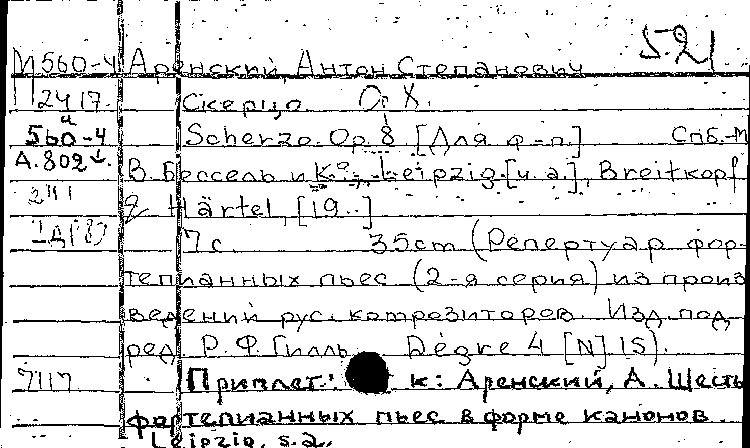 5.21
М560-4 Аренский, Антон Степанович
П2417 Скерцо О. Х.
560-4 Scherzo. Op. 8 [Для ф-п.] Спб.-М
А.802 В. Бессель и К°, Leipzig [и. а.], Breitkopf
& Härtel, [19..]
7 с. 35cm (Репертуар фор-
тепианных пьес (2-я серия) из произ
ведений рус. композиторов. Изд. под
ред. Р. Ф. Гилль. Degré 4 [N] 15).
7117 Приплет. к: Аренский, А. Шесть
фортепианных пьес в форме канонов
Leipzig, s.a.